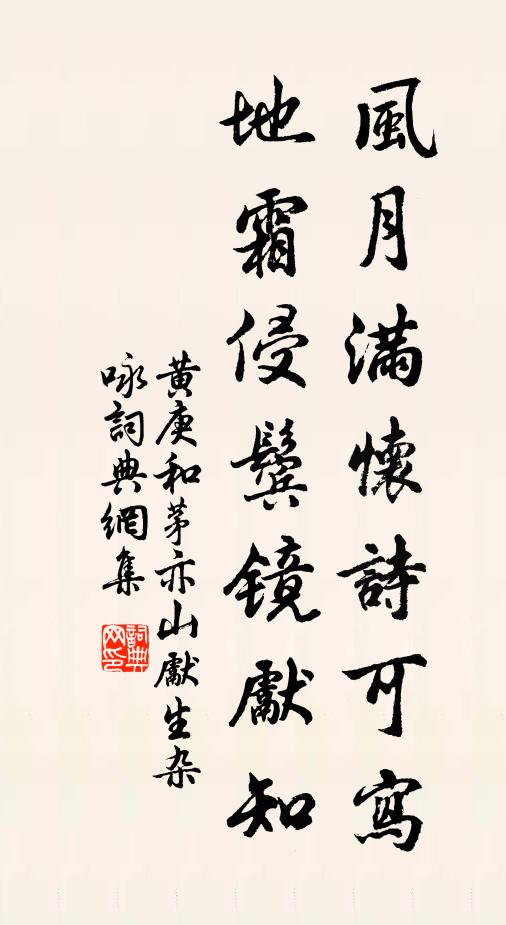 風月滿懷詩可寫
地霜侵鬢镜獻知
黃庚和茅亦山獻生杂
咏詞典網集
詞典
网印